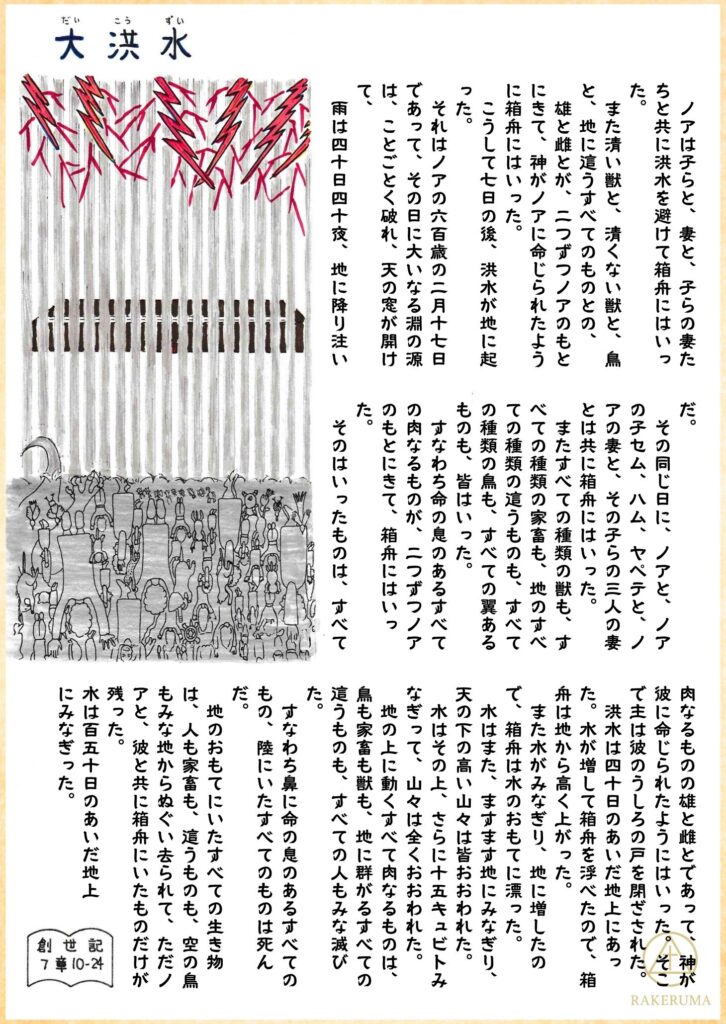 だいこうずい
大洪水
ノアは子らと、妻と、子らの妻た
ちと共に洪水を避けて箱舟にはいっ
た。
また清い獣と、清くない獣と、鳥
と、地に這うすべてのものとの、
雄と雌とが、二つずつノアのもと
にきて、神がノアに命じられたよう
に箱舟にはいった。
こうして七日の後、洪水が地に起
った。
それはノアの六百歳の二月十七日
であって、その日に大いなる淵の源
は、ことごとく破れ、天の窓が開け
て、
雨は四十日四十夜、地に降り注い
だ。
その同じ日に、ノアと、ノア
の子セム、ハム、ヤペテと、ノ
アの妻と、その子らの三人の妻
とは共に箱舟にはいった。
またすべての種類の獣も、す
べての種類の家畜も、地のすべ
ての種類の這うものも、すべて
の種類の鳥も、すべての翼ある
ものも、皆はいった。
すなわち命の息のあるすべて
の肉なるものが、二つずつノア
のもとにきて、箱舟にはいっ
た。
そのはいったものは、すべて
肉なるものの雄と雌とであって、神が
彼に命じられたようにはいった。そこ
で主は彼のうしろの戸を閉ざされた。
洪水は四十日のあいだ地上にあっ
た。水が増して箱舟を浮べたので、箱
舟は地から高く上がった。
また水がみなぎり、地に増したの
で、箱舟は水のおもてに漂った。
水はまた、ますます地にみなぎり、
天の下の高い山々は皆おおわれた。
水はその上、さらに十五キュビトみ
なぎって、山々は全くおおわれた。
地の上に動くすべて肉なるものは、
鳥も家畜も獣も、地に群がるすべての
這うものも、すべての人もみな滅び
た。
すなわち鼻に命の息のあるすべての
もの、陸にいたすべてのものは死ん
だ。
地のおもてにいたすべての生き物
は、人も家畜も、這うものも、空の鳥
もみな地からぬぐい去られて、ただノ
アと、彼と共に箱舟にいたものだけが
残った。
水は百五十日のあいだ地上
にみなぎった。
創世記
7章10-24
RAKERUMA